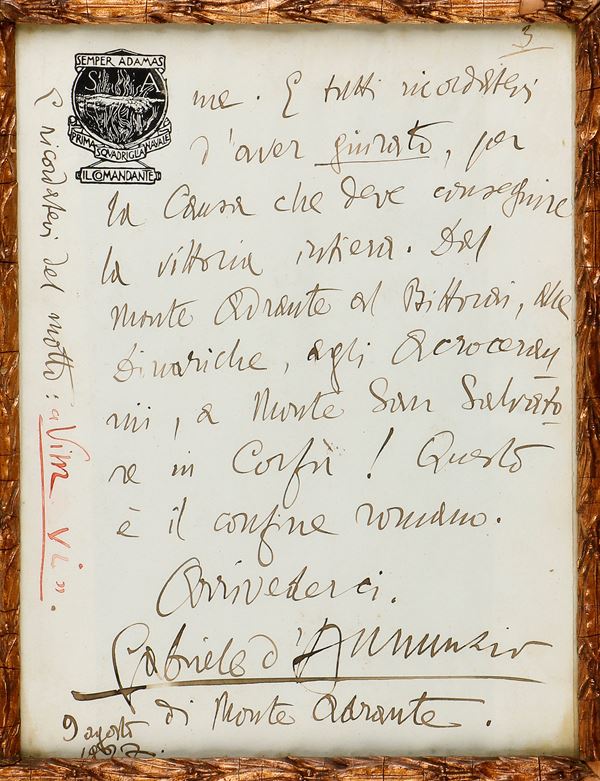 3
SEMPER ADAMAS
S A
PRIMA SQUADRIGLIA NAVALE
IL COMANDANTE
me. E tutti ricordatevi
d'aver giurato, per
la Causa che deve conseguire
la vittoria intiera. Dal
Monte Adrante al Bittorai, alle
Dinariche, agli Acrocerau
ni, a Monte San Salvato-
re in Corfù! Questo
è il confine romano.
Arrivederci.
Gabriele d'Annunzio
di Monte Adrante.
9 agosto
E ricordatevi del motto: "Vim Vi".